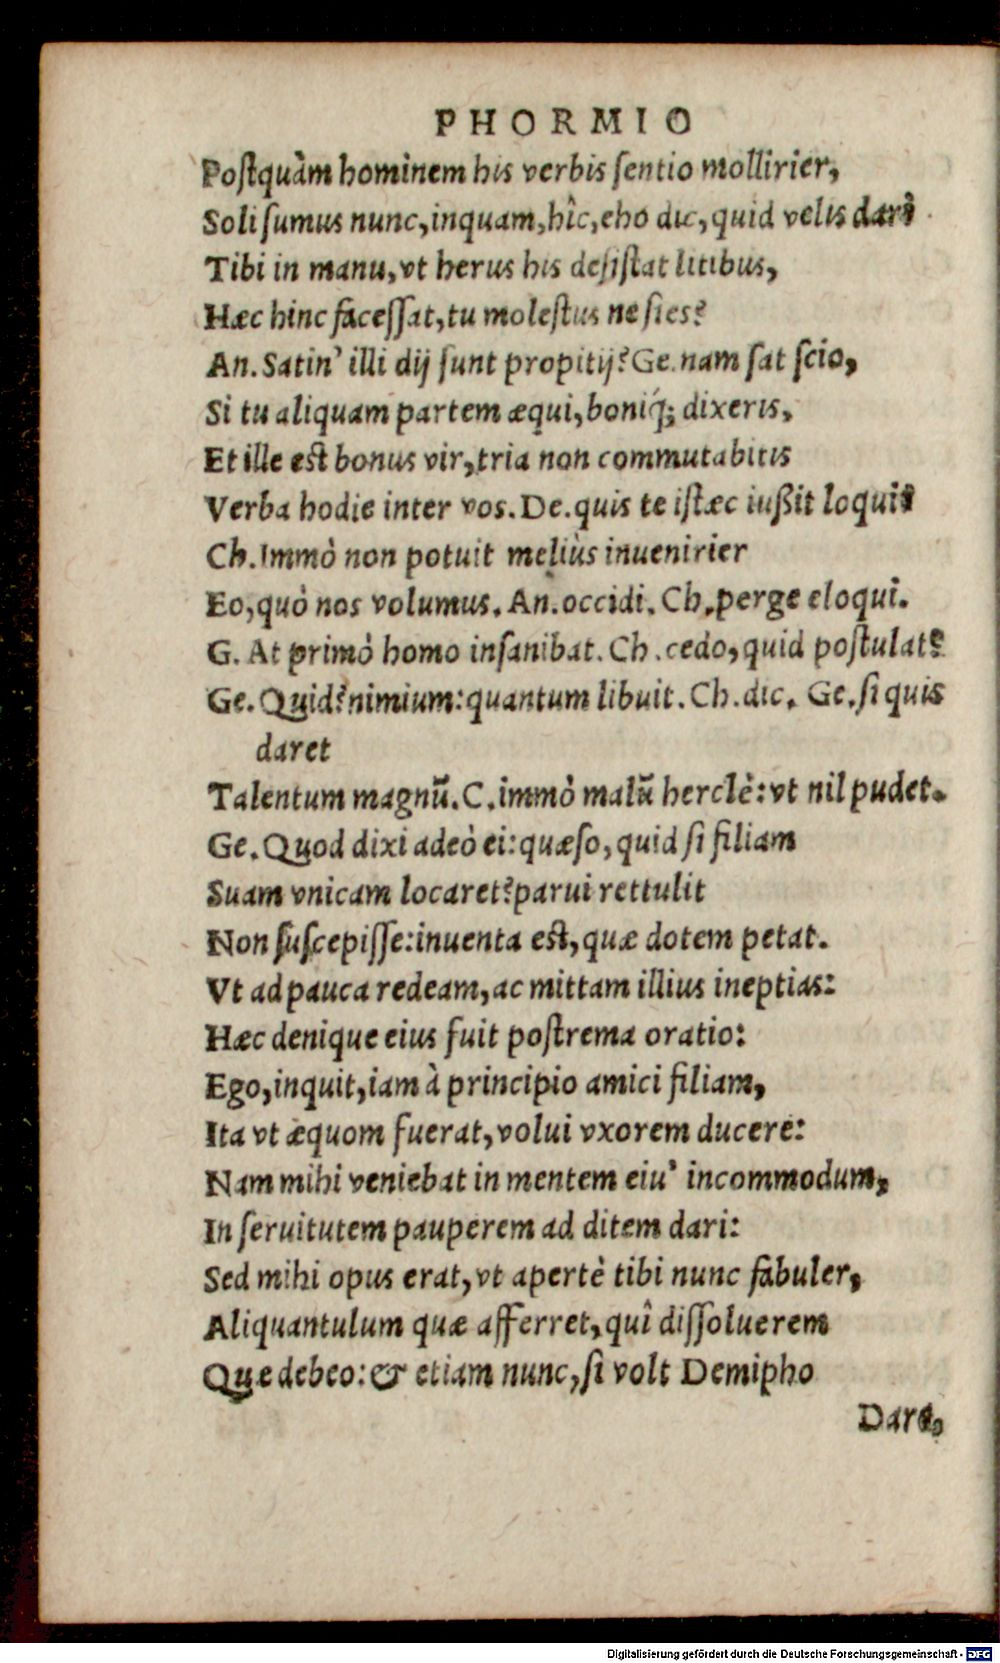 PHORMIO
Postquàm hominem his verbis ſentio mollirier,
Soli ſumus nunc, inquam, hîc, eho dic, quid velis dari
Tibi in manu, vt herus his deſiſtat litibus,
Hæc hinc faceſſat, tu moleſtus ne ſies?
An. Satin’ illi dij ſunt propitij? Ge. nam ſat ſcio,
Si tu aliquam partem æqui, boniq́; dixeris,
Et ille est bonus vir, tria non commutabitis
Verba hodie inter vos. De. quis te iſtæc iußit loqui?
Ch. Immò non potuit meliùs inuenirier
Eo, quò nos volumus. An. occidi. Ch. perge eloqui.
G. At primò homo inſanibat. Ch. cedo, quid poſtulat?
Ge. Quid? nimium: quantum libuit. Ch. dic. Ge. ſi quis
daret
Talentum magnũ. C. immò malũ herclè: vt nil pudet.
Ge. Quod dixi adeò ei: quæſo, quid ſi filiam
Suam vnicam locaret? parui rettulit
Non ſuſcepiſſe: inuenta est, quæ dotem petat.
Vt ad pauca redeam, ac mittam illius ineptias:
Hæc denique eius fuit poſtrema oratio:
Ego, inquit, iam à principio amici filiam,
Ita vt æquom fuerat, volui vxorem ducere:
Nam mihi veniebat in mentem eiu’ incommodum,
In ſeruitutem pauperem ad ditem dari:
Sed mihi opus erat, vt apertè tibi nunc fabuler,
Aliquantulum quæ afferret, quî diſſoluerem
Quæ debeo: & etiam nunc, ſi volt Demipho
Dare,
Digitalisierung gefördert durch die Deutsche Forschungsgemeinschaft - DFG